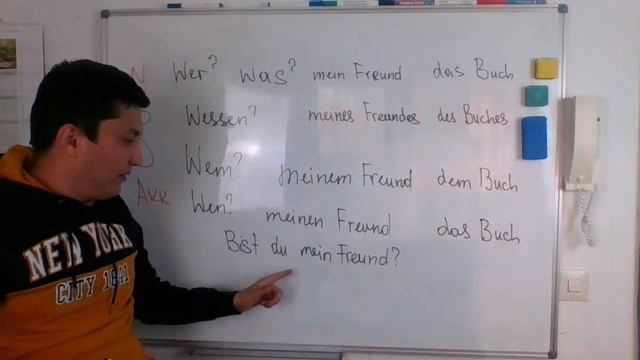 N Wer? Was? mein Freund. das Buch
Wessen? meines Freundes des Buches
D Wem? meinem Freund dem Buch
Akk Wen? meinen Freund das Buch
Bist du mein Freund?
NEW YORK
CITY 1841